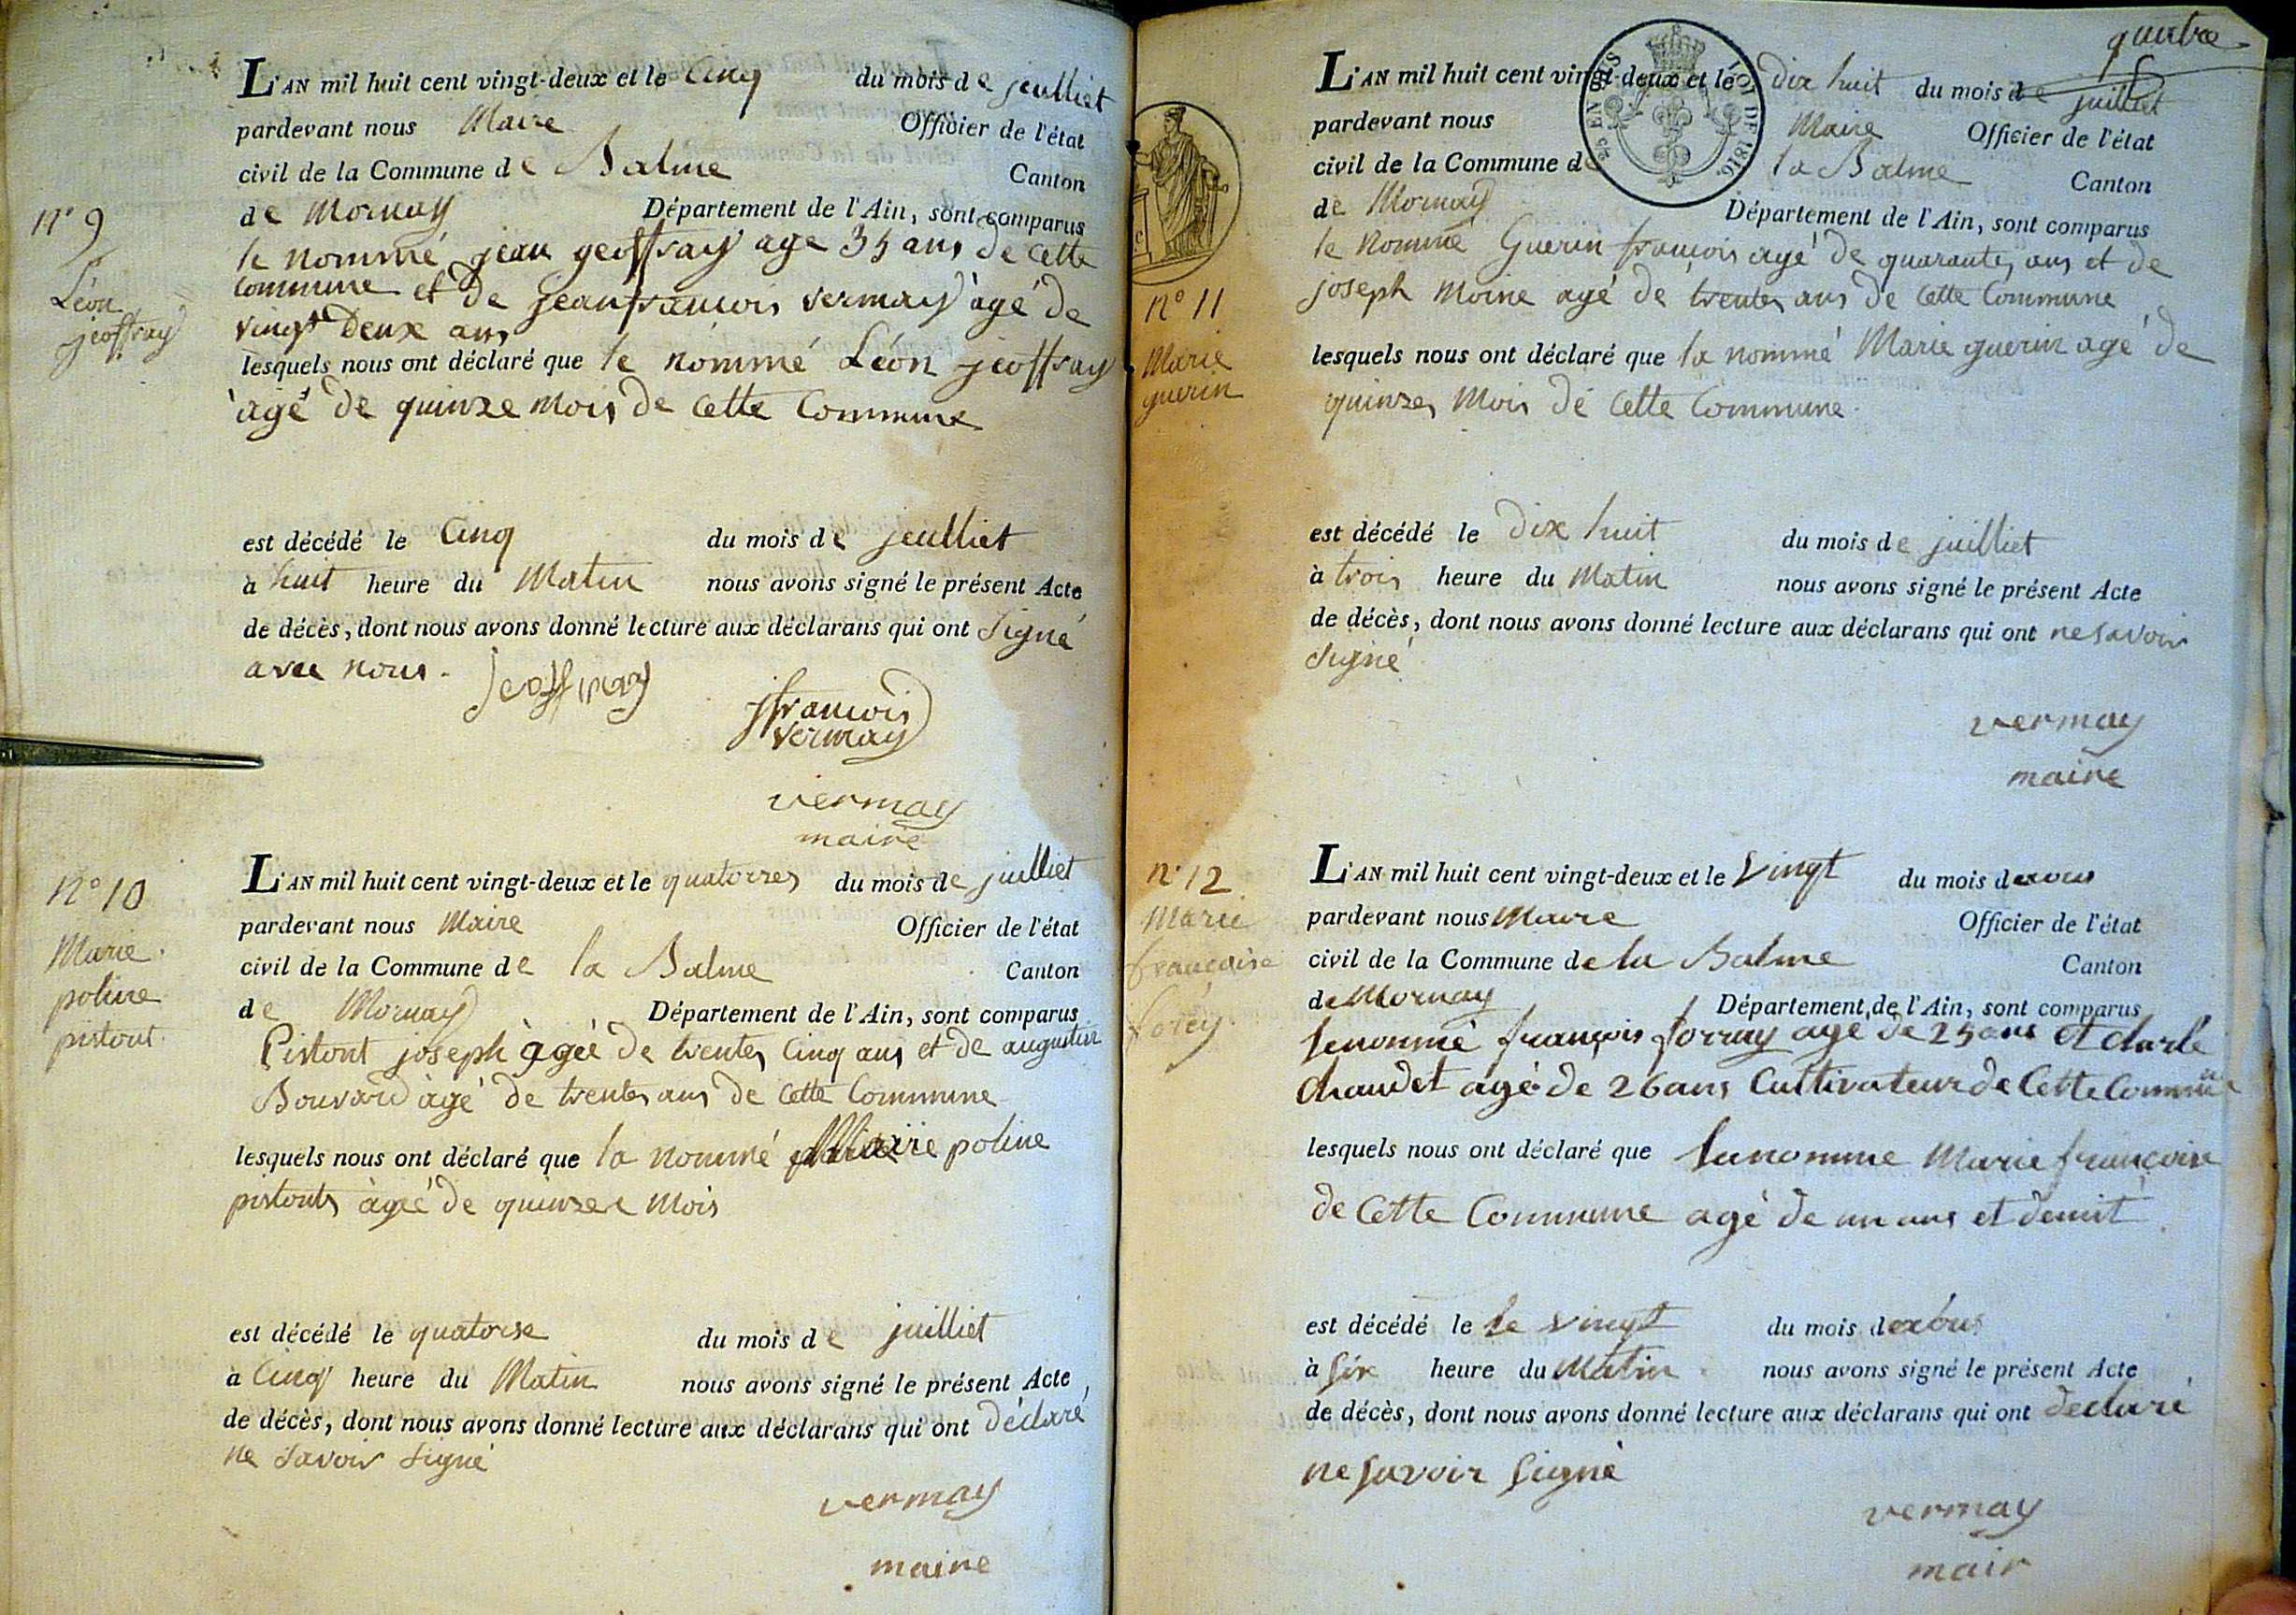 L'AN mil huit cent vingt-deux et le Cinq du mois de jeulliet
pardevant nous Maire Officier de l'état
civil de la Commune de Balme Canton
de Mornay Département de l'Ain, sont comparus
le nommé jean geoffray age 35 ans de Cette
Commune et de jeanfrancois vermay àgé de
vingt Deux ans
lesquels nous ont déclaré que le nommé Léon jeoffray
àgé de quinze mois de Cette Commune
n° 9
Léon
jeoffray
est décédé le Cinq du mois de jeulliet
à huit heure du Matin nous avons signé le présent Acte
de décès, dont nous avons donné lecture aux déclarans qui ont Signé
avec nous.
Jeoffray
jfrancois
vermay
vermay
maire
n° 10
Marie
poline
pistout
L'AN mil huit cent vingt-deux et le quatorzes du mois de juilliet
pardevant nous Maire Officier de l'état
civil de la Commune de la Balme Canton
de Mornay Département de l'Ain, sont comparus
Pistont joseph àgéé de trentes Cinq ans et de augustin
Bouvard àgé de trentes ans de Cette Commune
lesquels nous ont déclaré que la nommé Marie poline
pistouts àgéé de quinzee Mois
est décédé le quatorse du mois de juilliet
à Cinq heure du Matin nous avons signé le présent Acte
de décès, dont nous avons donné lecture aux déclarans qui ont Déclaré
ne savoir signé
vermay
maire
quatre
L'AN mil huit cent vingt-deux et le Dix huit du mois de juilliet
pardevant nous Maire Officier de l'état
civil de la Commune de la Balme Canton
de Mornay Département de l'Ain, sont comparus
le Nommé Guerin francois agé de quarantes ans et de
joseph Moine agé de trentes ans de Cette Commune
n° 11
Marie
guerin
lesquels nous ont déclaré que la nommé Marie guerin agé de
quinzes Mois de Cette Commune
est décédé le Dix huit du mois de juilliet
à trois heure du Matin nous avons signé le présent Acte
de décès, dont nous avons donné lecture aux déclarans qui ont ne savoir
signé
vermay
maire
n° 12
Marie
francoise
forey
L'AN mil huit cent vingt-deux et le Vingt du mois daous
pardevant nous Maire Officier de l'état
civil de la Commune de la Balme Canton
de Mornay Département de l'Ain, sont comparus
lenommé françois forray agé de 25 ans Et charle
chaudet agé de 26 ans Cultivateur de Cette Commune
lesquels nous ont déclaré que lanomme Marie françoise
de Cette Commune agé de un ans et demit
est décédé le le vingt du mois daous
à six heure du Matin nous avons signé le présent Acte
de décès, dont nous avons donné lecture aux déclarans qui ont declaré
ne savoir signé
vermay
mair